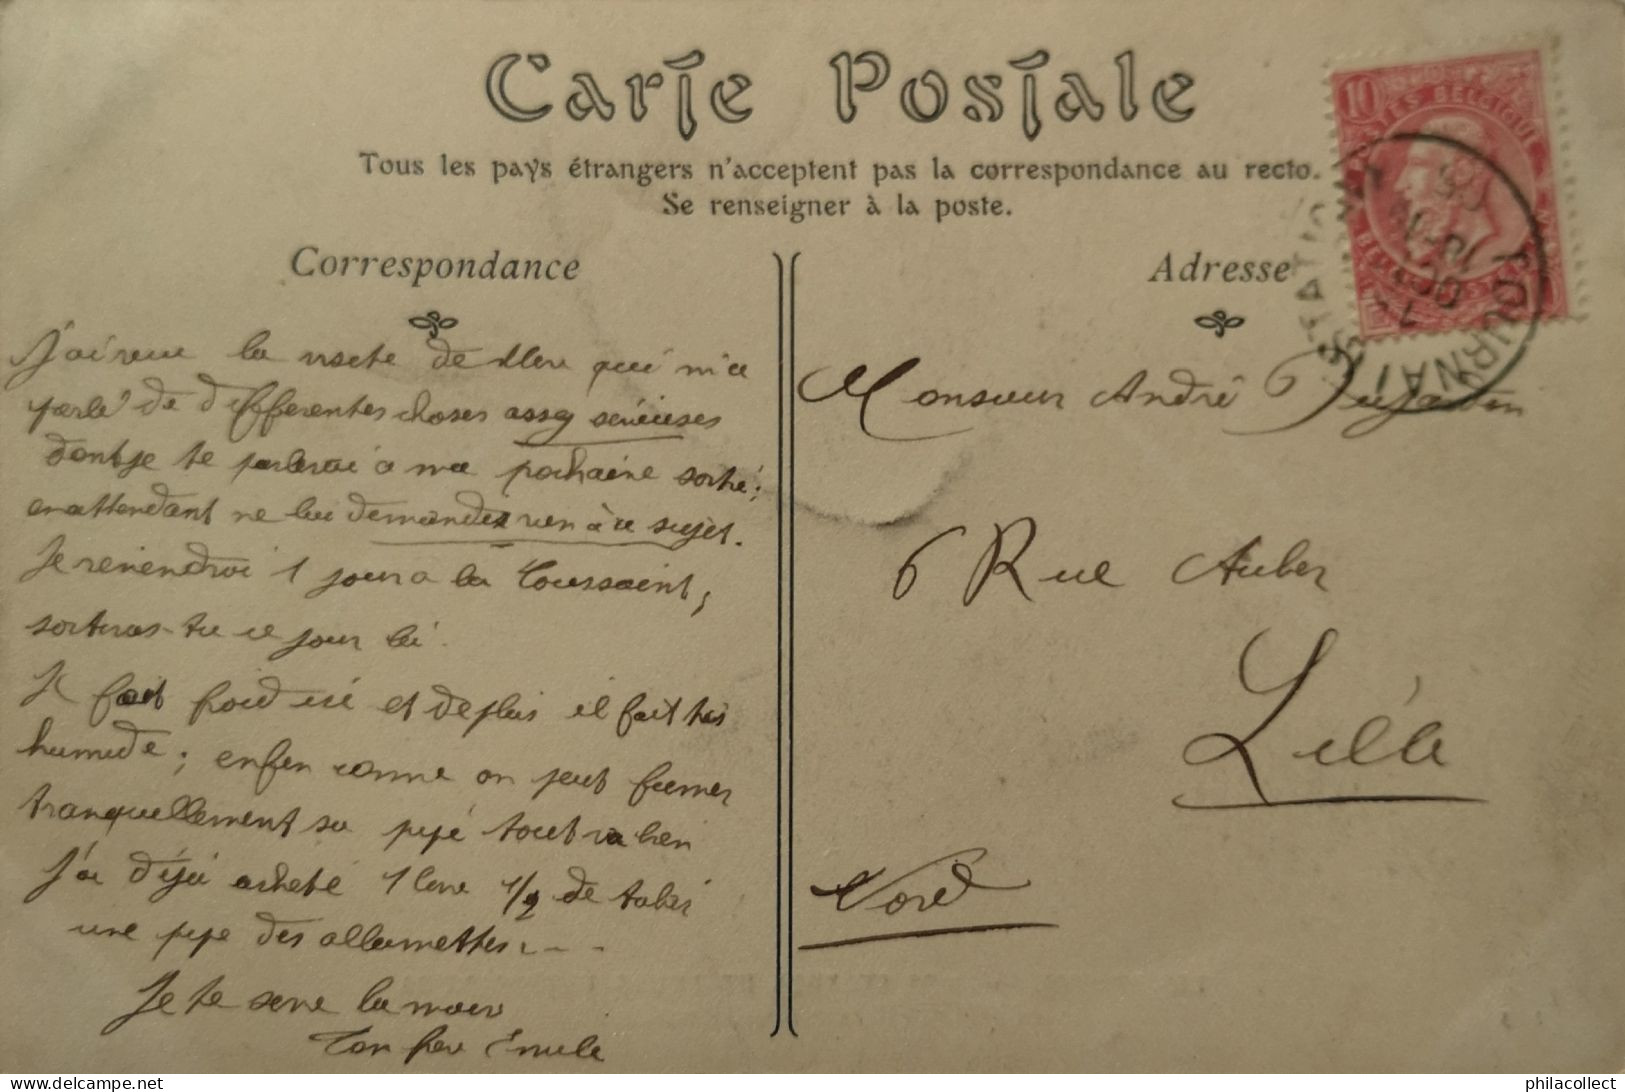 Carte Postale
Tous les pays étrangers n'acceptent pas la correspondance au recto.
Se renseigner à la poste.
Correspondance
Adresse
10
POSTES BELGIQUE
TOURNAI
STATION
J'ai reçu la visite de qui m'a
parlé de differentes choses assez sérieuses
dont je te parlerai a ma prochaine sortie;
en attendant ne lui demandes rien à ce sujet.
Je reviendrai 1 jour a la Toussaint,
sortiras-tu ce jour là.
Il fait froid ici et de plus il fait très
humide; enfin comme on peut fumer
tranquillement sa pipe tout va bien
J'ai déjà acheté 1 livre 1/2 de tabac
une pipe des allumettes...
Je te serre la main
Ton frère Emile
Monsieur André
6 Rue Auber
Lille
Nord
philacollect